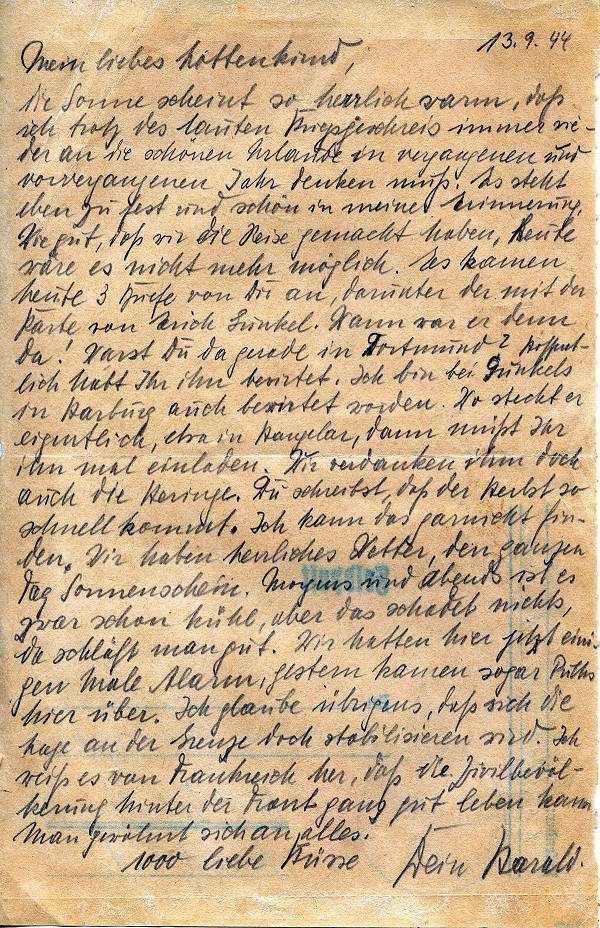 13. 9. 44
Mein liebes Lottenkind,
die Sonne scheint so herrlich warm, daß
ich trotz des lauten Kriegsgeschreis immer wie-
der an die schönen Urlaube in vergangenen und
vorvergangenen Jahr denken muß. Es steht
eben zu fest und schön in meiner Erinnerung.
Wie gut, daß wir die Reise gemacht haben, heute
wäre es nicht mehr möglich. Es kamen
heute 3 Briefe von Dir an, darunter der mit der
Karte von Erich Gunkel. Wann war er denn
da? Warst Du da gerade in Dortmund? Hoffent-
lich habt Ihr ihn bewirtet. Ich bin bei Gunkels
in Harburg auch bewirtet worden. Wo steckt er
eigentlich, etwa in Hangelar, dann müßt Ihr
ihn mal einladen. Wir verdanken ihm doch
auch die Heringe. Du schreibst, daß der Herbst so
schnell kommt. Ich kann das garnicht fin-
den. Wir haben herrliches Wetter, den ganzen
Tag Sonnenschein. Morgens und abends ist es
zwar schon kühl, aber das schadet nichts,
da schläft man gut. Wir hatten hier jetzt eini-
gen Male Alarm, gestern kamen sogar
hier über. Ich glaube übrigens, daß sich die
Lage an der Grenze doch stabilisieren wird. Ich
weiß es von Frankreich her, daß die Zivilbevöl-
kerung hinter der Front ganz gut leben kann
Man gewöhnt sich an alles.
1000 liebe Küsse Dein Harald.